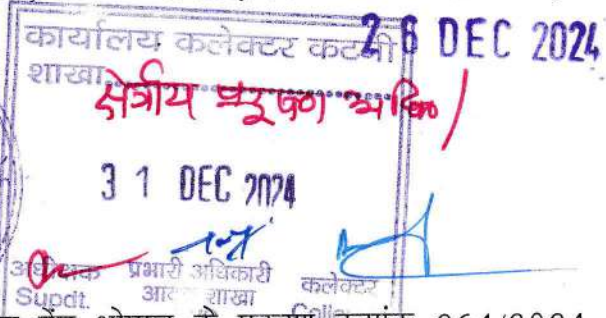 कार्यालय कलेक्टर कटनी
26 DEC 2024
शाखा
क्षेत्रीय प्रदूषण अधि०
31 DEC 2024
अधीक्षक प्रभारी अधिकारी कलेक्टर
Supdt. शाखा
264/2024